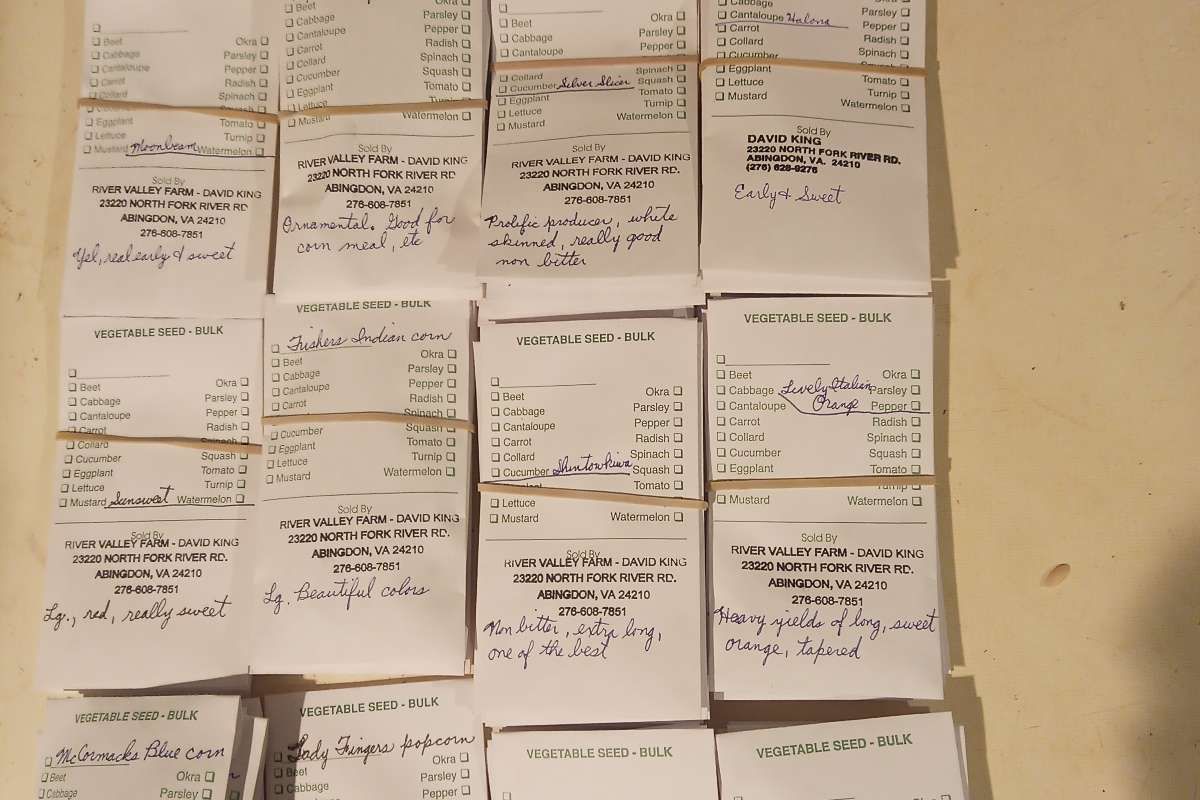 Beet
Okra
Cabbage
Parsley
Cantaloupe
Pepper
Carrot
Radish
Collard
Spinach
Squash
Eggplant
Tomato
Lettuce
Turnip
Mustard Moonbeam Watermelon
Sold By
RIVER VALLEY FARM - DAVID KING
23220 NORTH FORK RIVER RD.
ABINGDON, VA 24210
276-608-7851
Yel, real early & sweet
Beet
Okra
Cabbage
Parsley
Cantaloupe
Pepper
Carrot
Radish
Collard
Spinach
Cucumber
Squash
Eggplant
Tomato
Lettuce
Turnip
Mustard
Watermelon
Sold By
RIVER VALLEY FARM - DAVID KING
23220 NORTH FORK RIVER RD
ABINGDON, VA 24210
276-608-7851
Ornamental. Good for
corn meal, etc
Beet
Okra
Cabbage
Parsley
Cantaloupe
Pepper
Collard
Spinach
Cucumber Silver Slicer Squash
Eggplant
Tomato
Lettuce
Turnip
Mustard
Watermelon
Sold By
RIVER VALLEY FARM - DAVID KING
23220 NORTH FORK RIVER RD.
ABINGDON, VA 24210
276-608-7851
Prolific producer, white
skinned, really good
non bitter
Cabbage
Parsley
Cantaloupe Halona
Pepper
Carrot
Radish
Collard
Spinach
Cucumber
Squash
Eggplant
Tomato
Lettuce
Turnip
Mustard
Watermelon
Sold By
DAVID KING
23220 NORTH FORK RIVER RD.
ABINGDON, VA. 24210
(276) 628-9276
Early & Sweet
VEGETABLE SEED - BULK
Beet
Okra
Cabbage
Parsley
Cantaloupe
Pepper
Carrot
Radish
Collard
Spinach
Cucumber
Squash
Eggplant
Tomato
Lettuce
Turnip
Mustard Sunsweet Watermelon
Sold By
RIVER VALLEY FARM - DAVID KING
23220 NORTH FORK RIVER RD.
ABINGDON, VA 24210
276-608-7851
Lg., red, really sweet
VEGETABLE SEED - BULK
Fishers Indian corn
Beet
Okra
Cabbage
Parsley
Cantaloupe
Pepper
Carrot
Radish
Spinach
Cucumber
Squash
Eggplant
Tomato
Lettuce
Turnip
Mustard
Watermelon
Sold By
RIVER VALLEY FARM - DAVID KING
23220 NORTH FORK RIVER RD.
ABINGDON, VA 24210
276-608-7851
Lg. Beautiful colors
VEGETABLE SEED - BULK
Beet
Okra
Cabbage
Parsley
Cantaloupe
Pepper
Carrot
Radish
Collard
Spinach
Cucumber Shintowkiwa Squash
Tomato
Lettuce
Mustard
Watermelon
Sold By
RIVER VALLEY FARM - DAVID KING
23220 NORTH FORK RIVER RD.
ABINGDON, VA 24210
276-608-7851
Non bitter, extra long,
one of the best
VEGETABLE SEED - BULK
Beet
Okra
Cabbage Lively Italian Parsley
Cantaloupe Orange Pepper
Carrot
Radish
Collard
Spinach
Cucumber
Squash
Eggplant
Tomato
Turnip
Mustard
Watermelon
Sold By
RIVER VALLEY FARM - DAVID KING
23220 NORTH FORK RIVER RD.
ABINGDON, VA 24210
276-608-7851
Heavy yields of long, sweet
orange, tapered
VEGETABLE SEED - BULK
McCormacks Blue corn
Beet
Okra
Cabbage
Parsley
VEGETABLE SEED - BULK
Lady Fingers popcorn
Beet
Okra
Cabbage
Parsley
Cantaloupe
Pepper
VEGETABLE SEED - BULK
VEGETABLE SEED - BULK